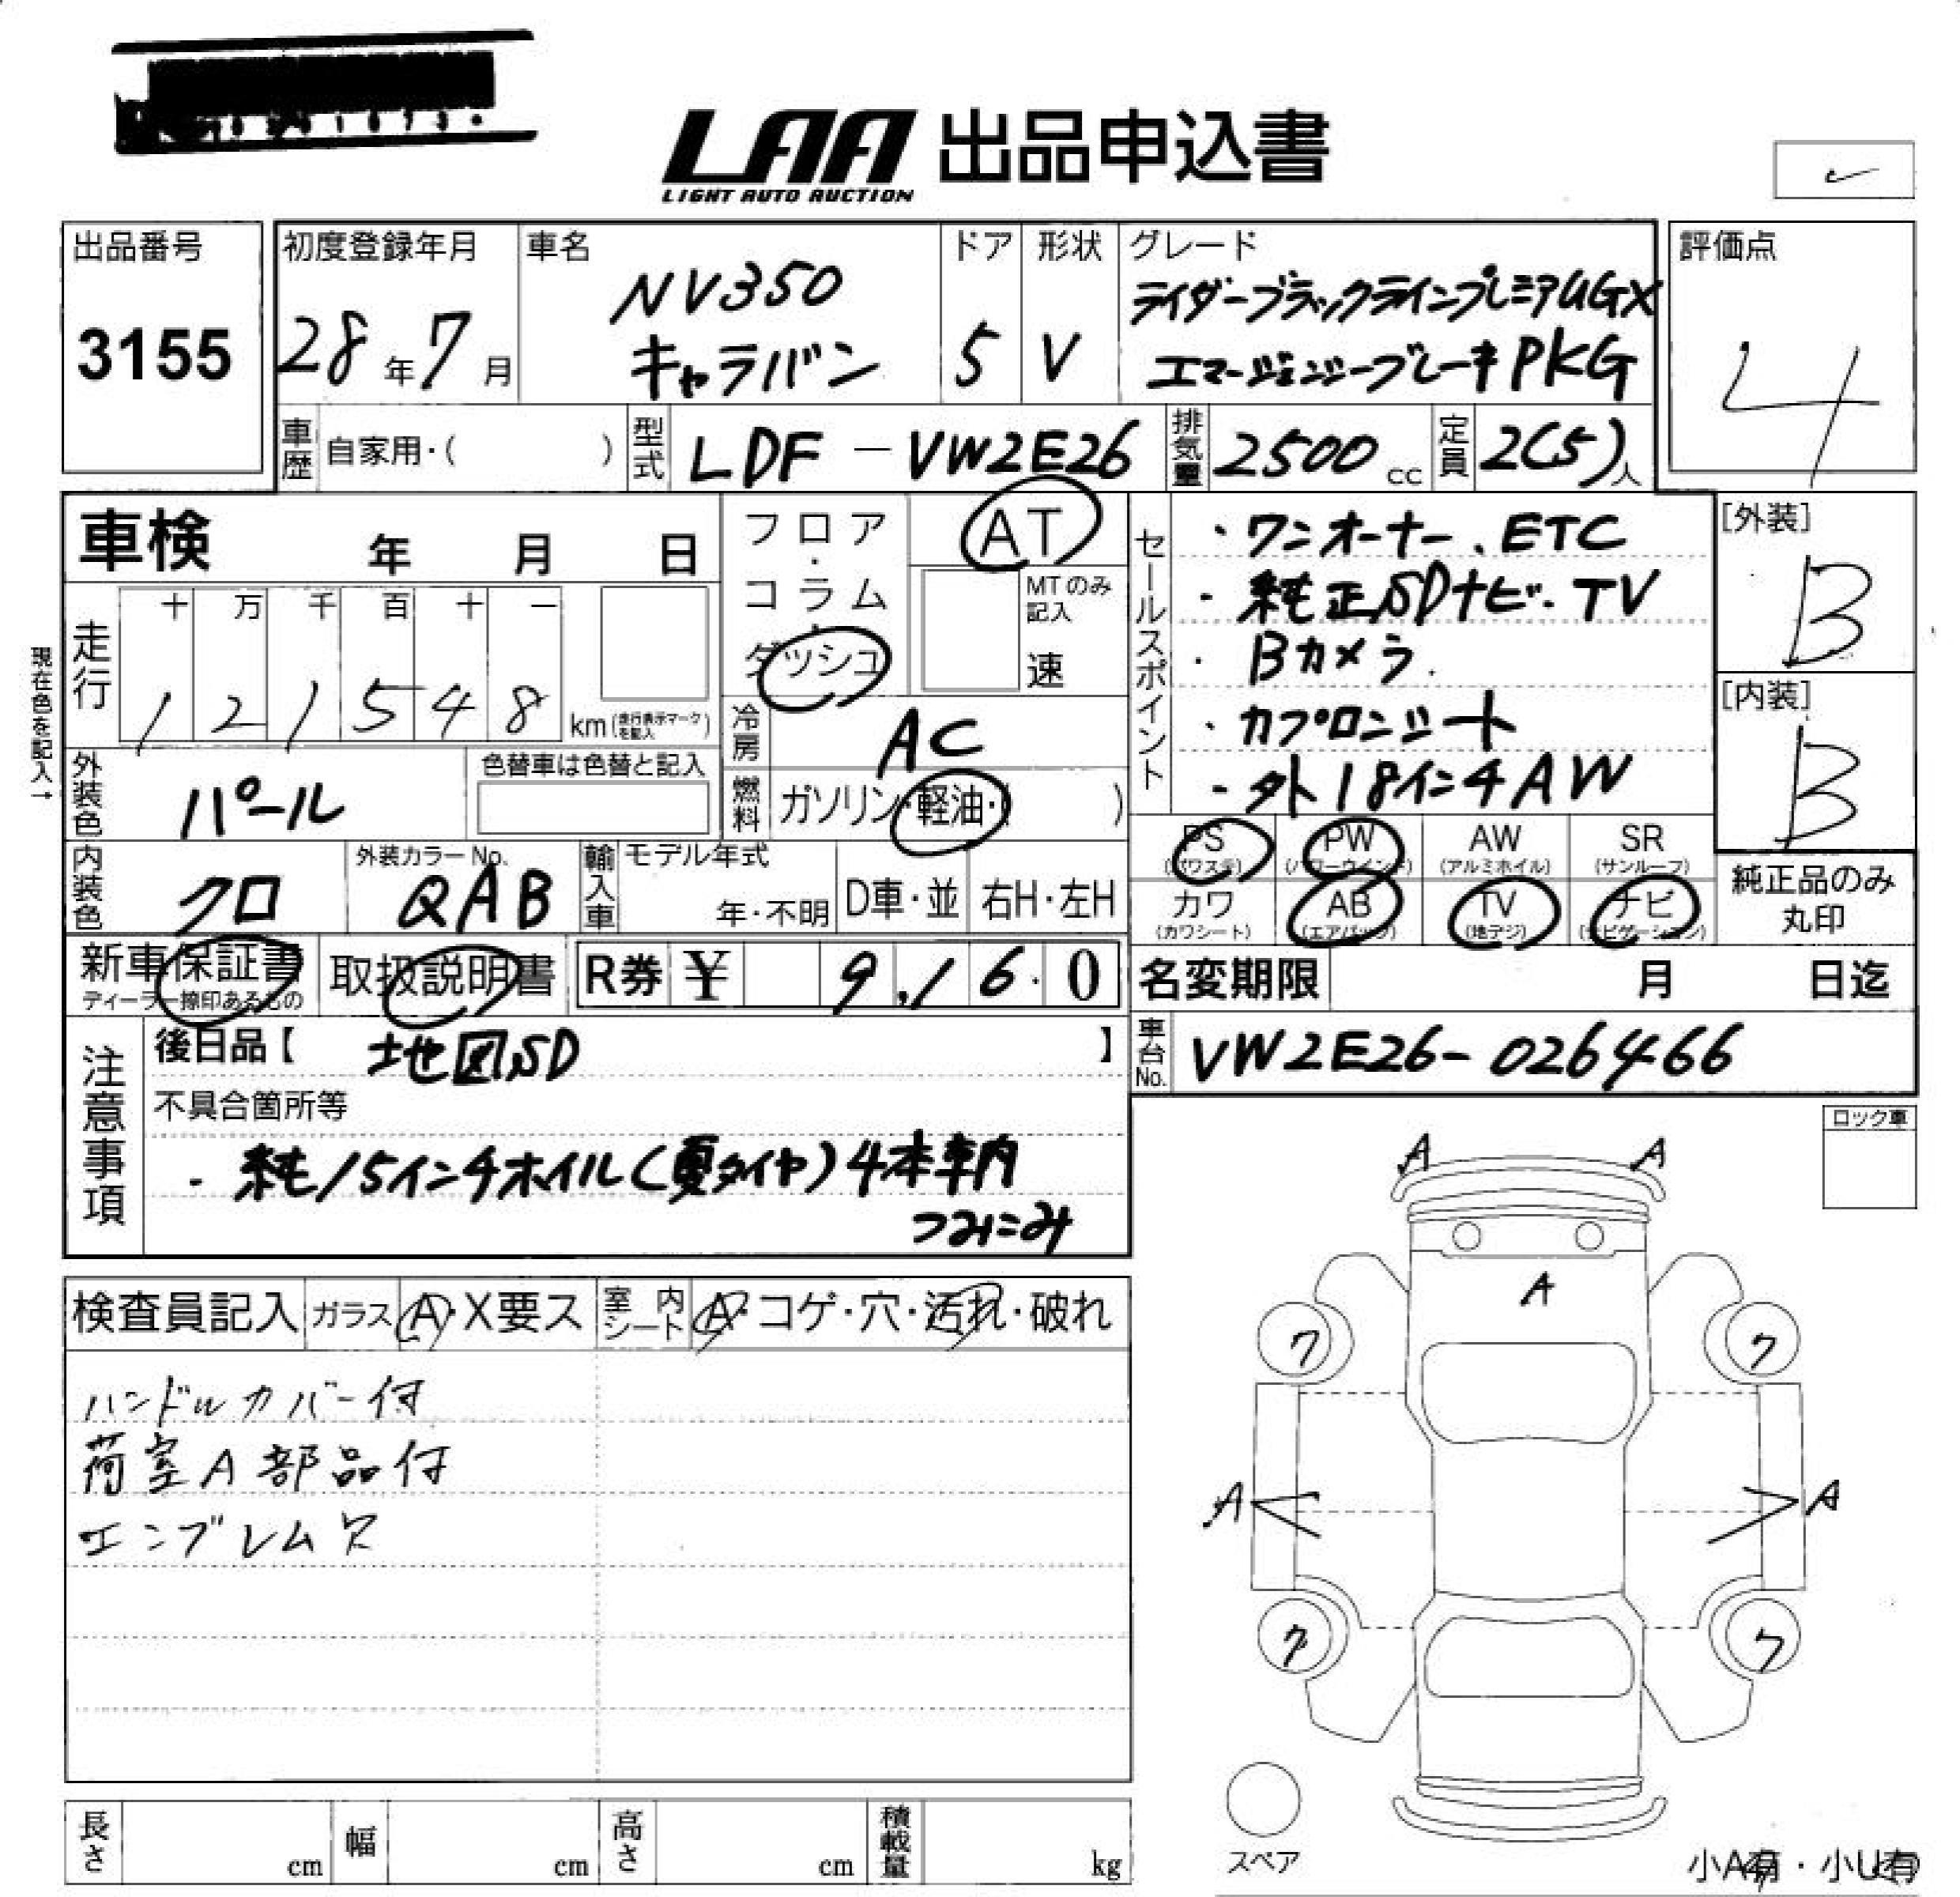 LAA 出品申込書
LIGHT AUTO AUCTION
出品番号
3155
初度登録年月
28年7月
車名
NV350
キャラバン
ドア
5
形状
V
グレード
ライダーブラックラインプレミアムGX
エマージェンシーブレーキPKG
評価点
4
車歴 自家用・( )
型式 LDF-VW2E26
排気量 2500cc
定員 2(5)人
車検 年 月 日
フロア・コラム・ダッシュ
AT
MTのみ記入
速
現在色を記入→
走行
十 万 千 百 十 一
1 2 1 5 4 8 km(走行表示マークを記入)
冷房 AC
燃料 ガソリン・軽油・( )
外装色 パール
色替車は色替と記入
内装色 クロ
外装カラーNo. QAB
輸入車
モデル年式
年・不明
D車・並
右H・左H
セールスポイント
・ワンオーナー、ETC
・純正SDナビ・TV
・Bカメラ
・カプロンシート
・外18インチAW
[外装]
B
[内装]
B
PS (パワステ)
PW (パワーウインド)
AW (アルミホイル)
SR (サンルーフ)
カワ (カワシート)
AB (エアバッグ)
TV (地デジ)
ナビ (ナビゲーション)
純正品のみ
丸印
新車保証書
ディーラー捺印あるもの
取扱説明書
R券 ¥ 9,160
名変期限 月 日迄
車台No. VW2E26-026466
注意事項
後日品【 地図SD 】
不具合箇所等
・純15インチホイル(夏タイヤ)4本車内
つみこみ
ロック車
検査員記入
ガラス A・X要ス
室内シート A・コゲ・穴・汚れ・破れ
ハンドルカバー付
荷室A部品付
エンブレム欠
A A
A
ワ ワ
A A
ワ ワ
スペア
長さ cm
幅 cm
高さ cm
積載量 kg
小A有・小U有